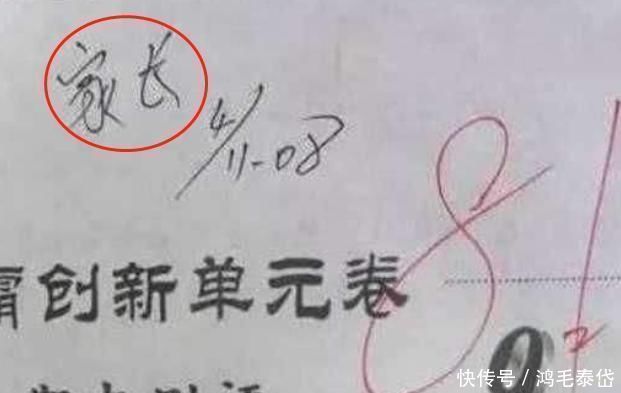 家长
4/11-08
创新单元卷
81
快传号/鸿毛泰岱